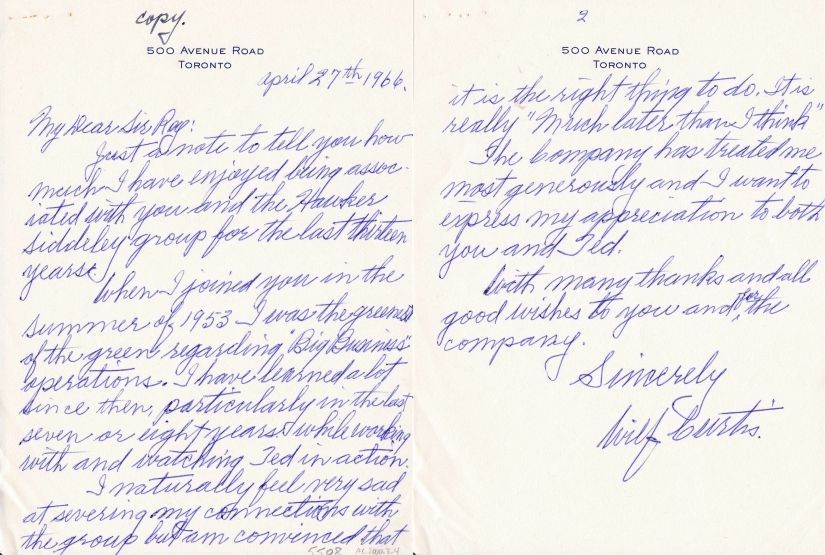 copy.
500 AVENUE ROAD
TORONTO
April 27th 1966.
My Dear Sir Roy:
Just a note to tell you how
much I have enjoyed being assoc-
iated with you and the Hawker
Siddeley group for the last thirteen
years.
When I joined you in the
summer of 1953 I was the greenest
of the green regarding "Big Business"
operations. I have learned a lot
since then, particularly in the last
seven or eight years while working
with and watching Ted in action.
I naturally feel very sad
at severing my connections with
the group but am convinced that
2
500 AVENUE ROAD
TORONTO
it is the right thing to do. It is
really "Much later than I think"
The Company has treated me
most generously and I want to
express my appreciation to both
you and Ted.
With many thanks and all
good wishes to you and for the
company.
Sincerely
Wilf Curtis.